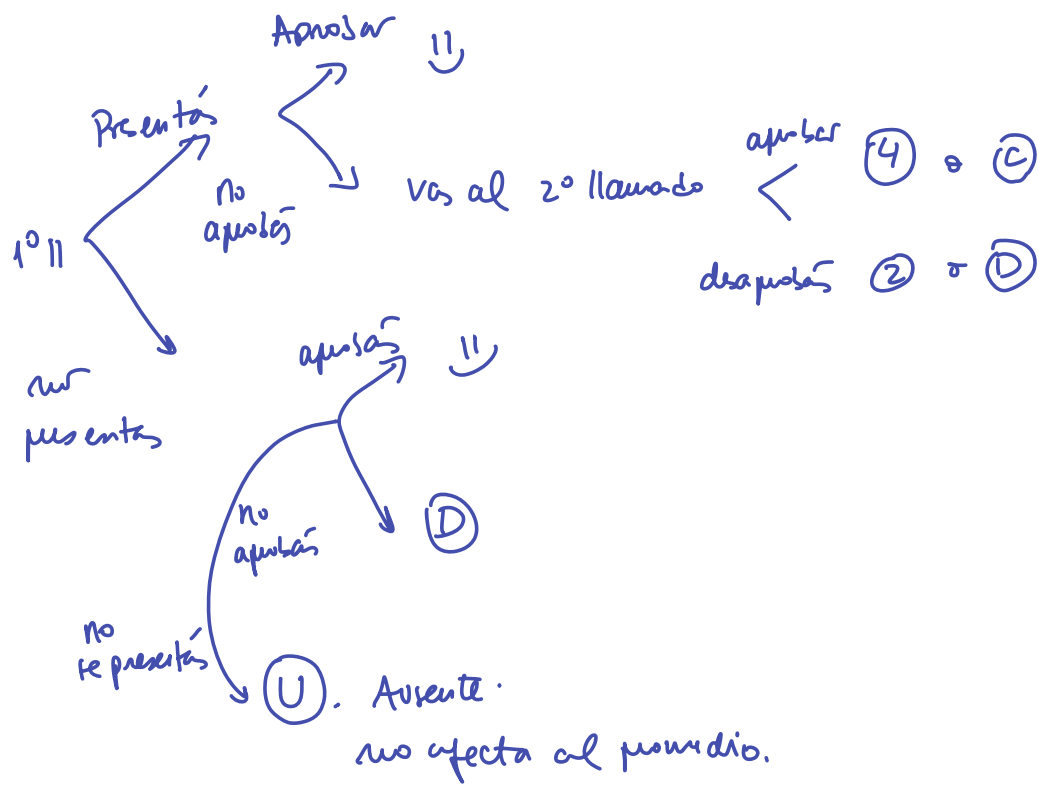 Aprobar
Presentás
no
aprobás
vas al 2º llamado
aprobar
4 o C
desaprobás 2 o D
1º ll
no
presentas
aprobás
D
no
aprobás
no
te presentás
U. Ausente.
no afecta al promedio.